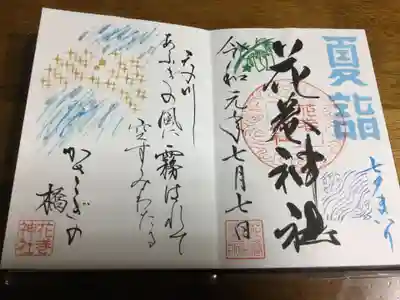 夏詣
七夕まいり
花巻神社
令和元年七月七日
天の川
あふぎの風に霧はれて
空すみわたる
かささぎの
橋
花巻神社